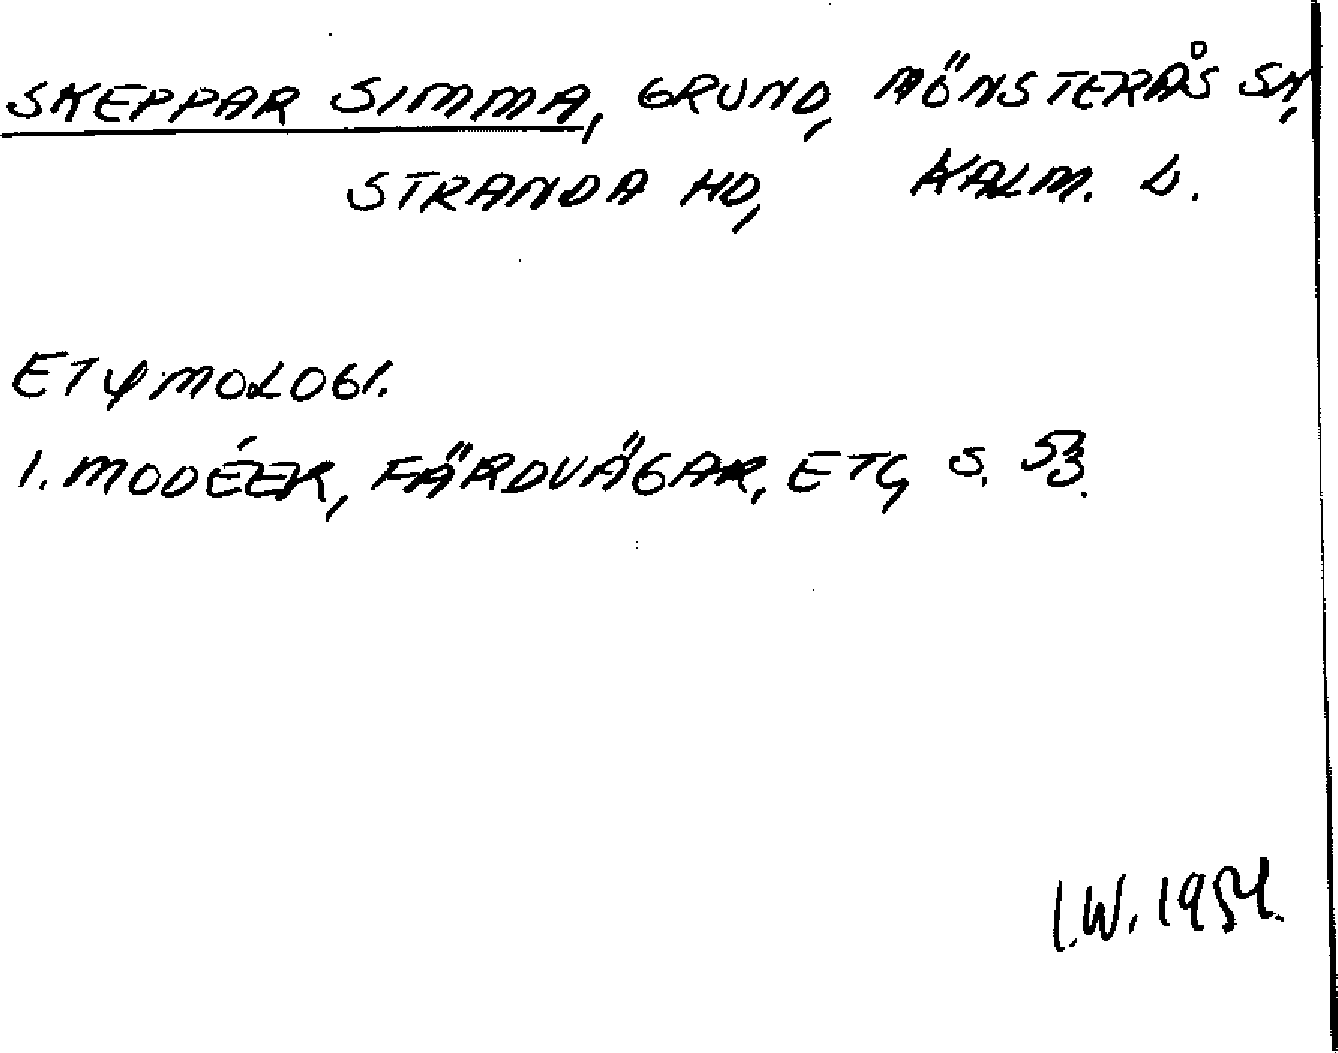 SKEPPAR SIMMA, GRUND, MÖNSTERÅS SN,
STRANDA HD, KALM. L.
ETYMOLOGI.
I. MODÉER, FÄRDVÄGAR, ETC, S. 53.
I.W. 1954.